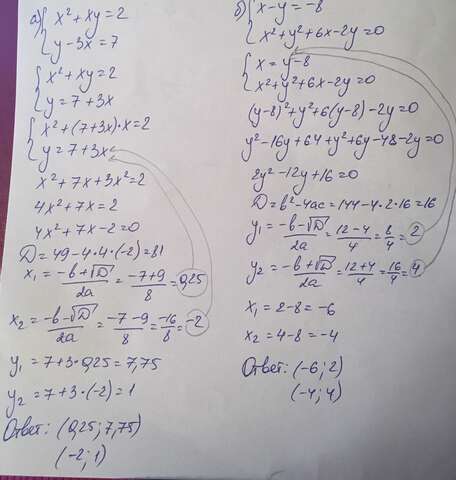 а) { x² + xy = 2
y - 3x = 7
{ x² + xy = 2
y = 7 + 3x
{ x² + (7 + 3x)·x = 2
y = 7 + 3x
x² + 7x + 3x² = 2
4x² + 7x = 2
4x² + 7x - 2 = 0
D = 49 - 4·4·(-2) = 81
x₁ = (-b + √D)/2a = (-7 + 9)/8 = 0,25
x₂ = (-b - √D)/2a = (-7 - 9)/8 = -16/8 = -2
y₁ = 7 + 3·0,25 = 7,75
y₂ = 7 + 3·(-2) = 1
Ответ: (0,25; 7,75)
(-2; 1)
б) { x - y = -8
x² + y² + 6x - 2y = 0
{ x = y - 8
x² + y² + 6x - 2y = 0
(y - 8)² + y² + 6(y - 8) - 2y = 0
y² - 16y + 64 + y² + 6y - 48 - 2y = 0
2y² - 12y + 16 = 0
D = b² - 4ac = 144 - 4·2·16 = 16
y₁ = (-b - √D)/2a = (12 - 4)/4 = 8/4 = 2
y₂ = (-b + √D)/2a = (12 + 4)/4 = 16/4 = 4
x₁ = 2 - 8 = -6
x₂ = 4 - 8 = -4
Ответ: (-6; 2)
(-4; 4)